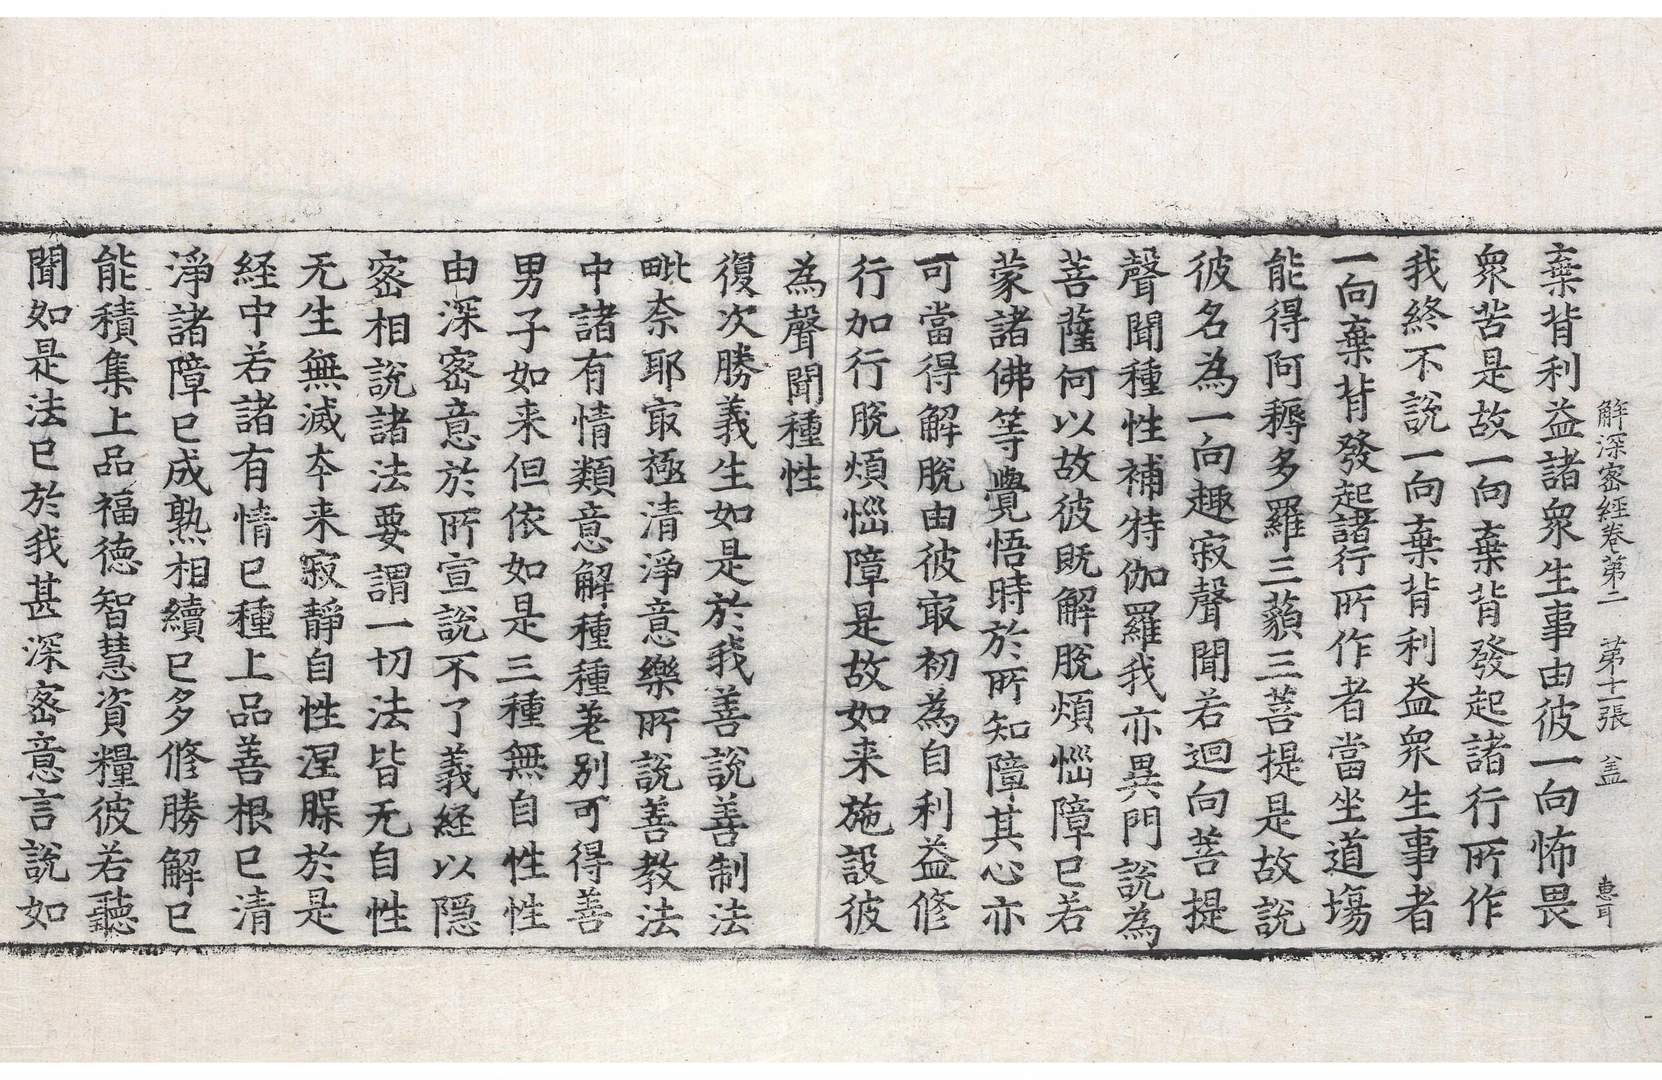 解深密經卷第二 第十一張 盖 惠耳
棄背利益諸衆生事由彼一向怖畏
衆苦是故一向棄背發起諸行所作
我終不説一向棄背利益衆生事者
一向棄背發起諸行所作者當坐道場
能得阿耨多羅三藐三菩提是故說
彼名為一向趣寂聲聞若迴向菩提
聲聞種性補特伽羅我亦異門說為
菩薩何以故彼既解脫煩惱障已若
蒙諸佛等覺悟時於所知障其心亦
可當得解脫由彼冣初為自利益修
行加行脫煩惱障是故如来施設彼
為聲聞種性
復次勝義生如是於我善說善制法
毗奈耶冣極清淨意樂所說善教法
中諸有情類意解種種差別可得善
男子如来但依如是三種無自性性
由深密意於所宣說不了義經以隱
密相說諸法要謂一切法皆无自性
无生無滅夲来寂靜自性涅槃於是
経中若諸有情已種上品善根已清
淨諸障已成熟相續已多修勝解已
能積集上品福德智慧資糧彼若聽
聞如是法已於我甚深密意言說如